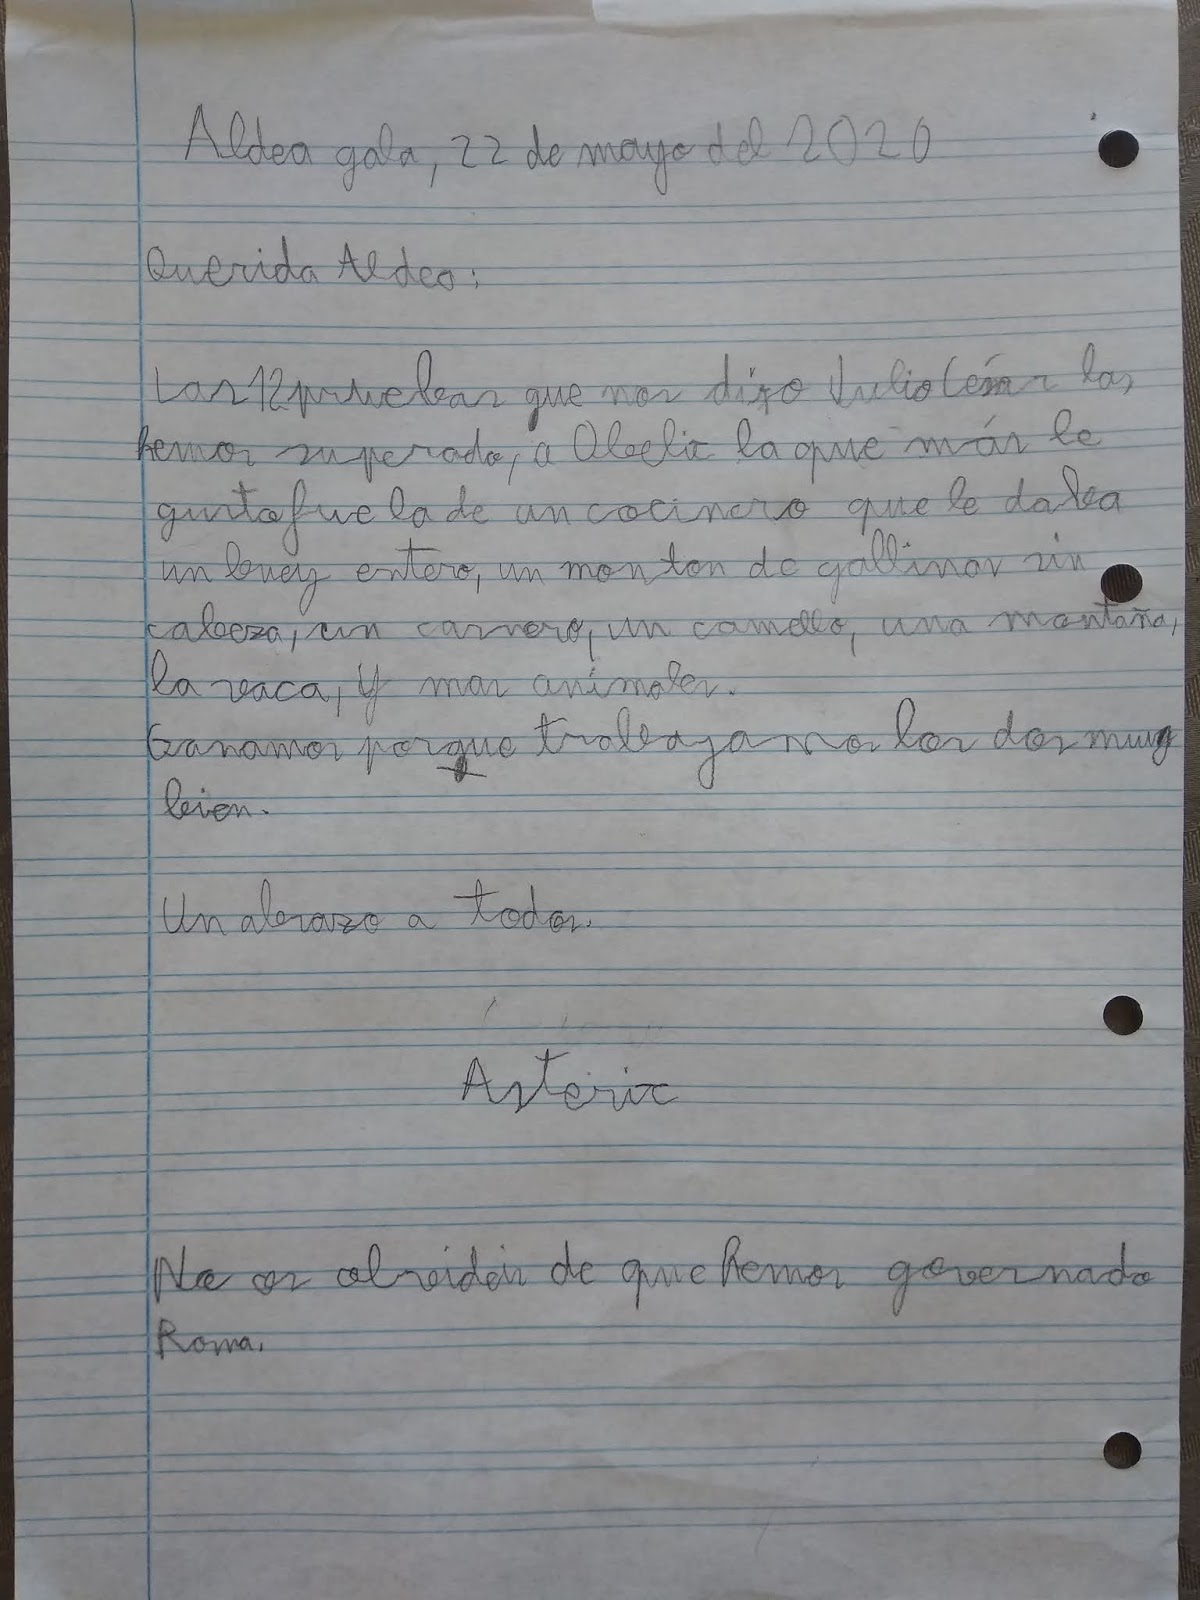 Aldea gala, 22 de mayo del 2020
Querida Aldea:
Las 12 pruebas que nos dijo Julio César las
hemos superado, a Obelix la que más le
gusto fue la de un cocinero que le daba
un buey entero, un monton de gallinas sin
cabeza, un carnero, un camello, una montaña,
la vaca, y mas animales.
Ganamos porque trabajamos los dos muy
bien.
Un abrazo a todos.
Astérix
No os olvideis de que hemos governado
Roma.